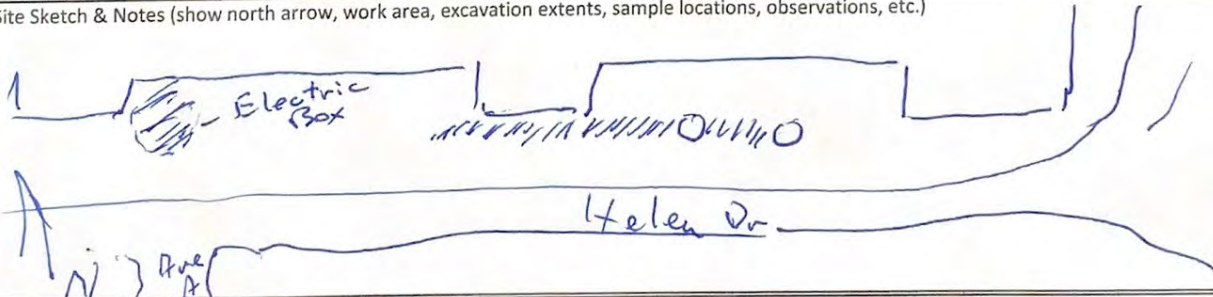 Site Sketch & Notes (show north arrow, work area, excavation extents, sample locations, observations, etc.)
Electric
Box
Helen Dr
N
Ave
A